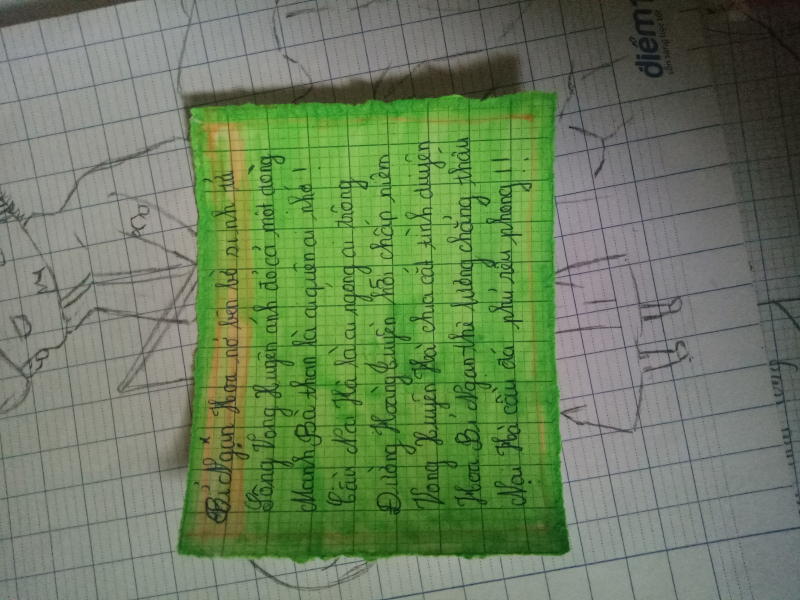 Bỉ Ngạn Hoa nở bên bờ sinh tử
Sông Vong Xuyên ánh đỏ cả một dòng
Mạnh Bà thang là ai quên ai nhớ!
Cầu Nại Hà là ai ngóng ai trông
Đường Hoàng Tuyền hồi chấp niệm
Vong Xuyên Hà chia cắt tình duyên
Hoa Bỉ Ngạn thê lương chẳng thấu
Nại Hà cầu đá phủ rêu phong!!
điểm